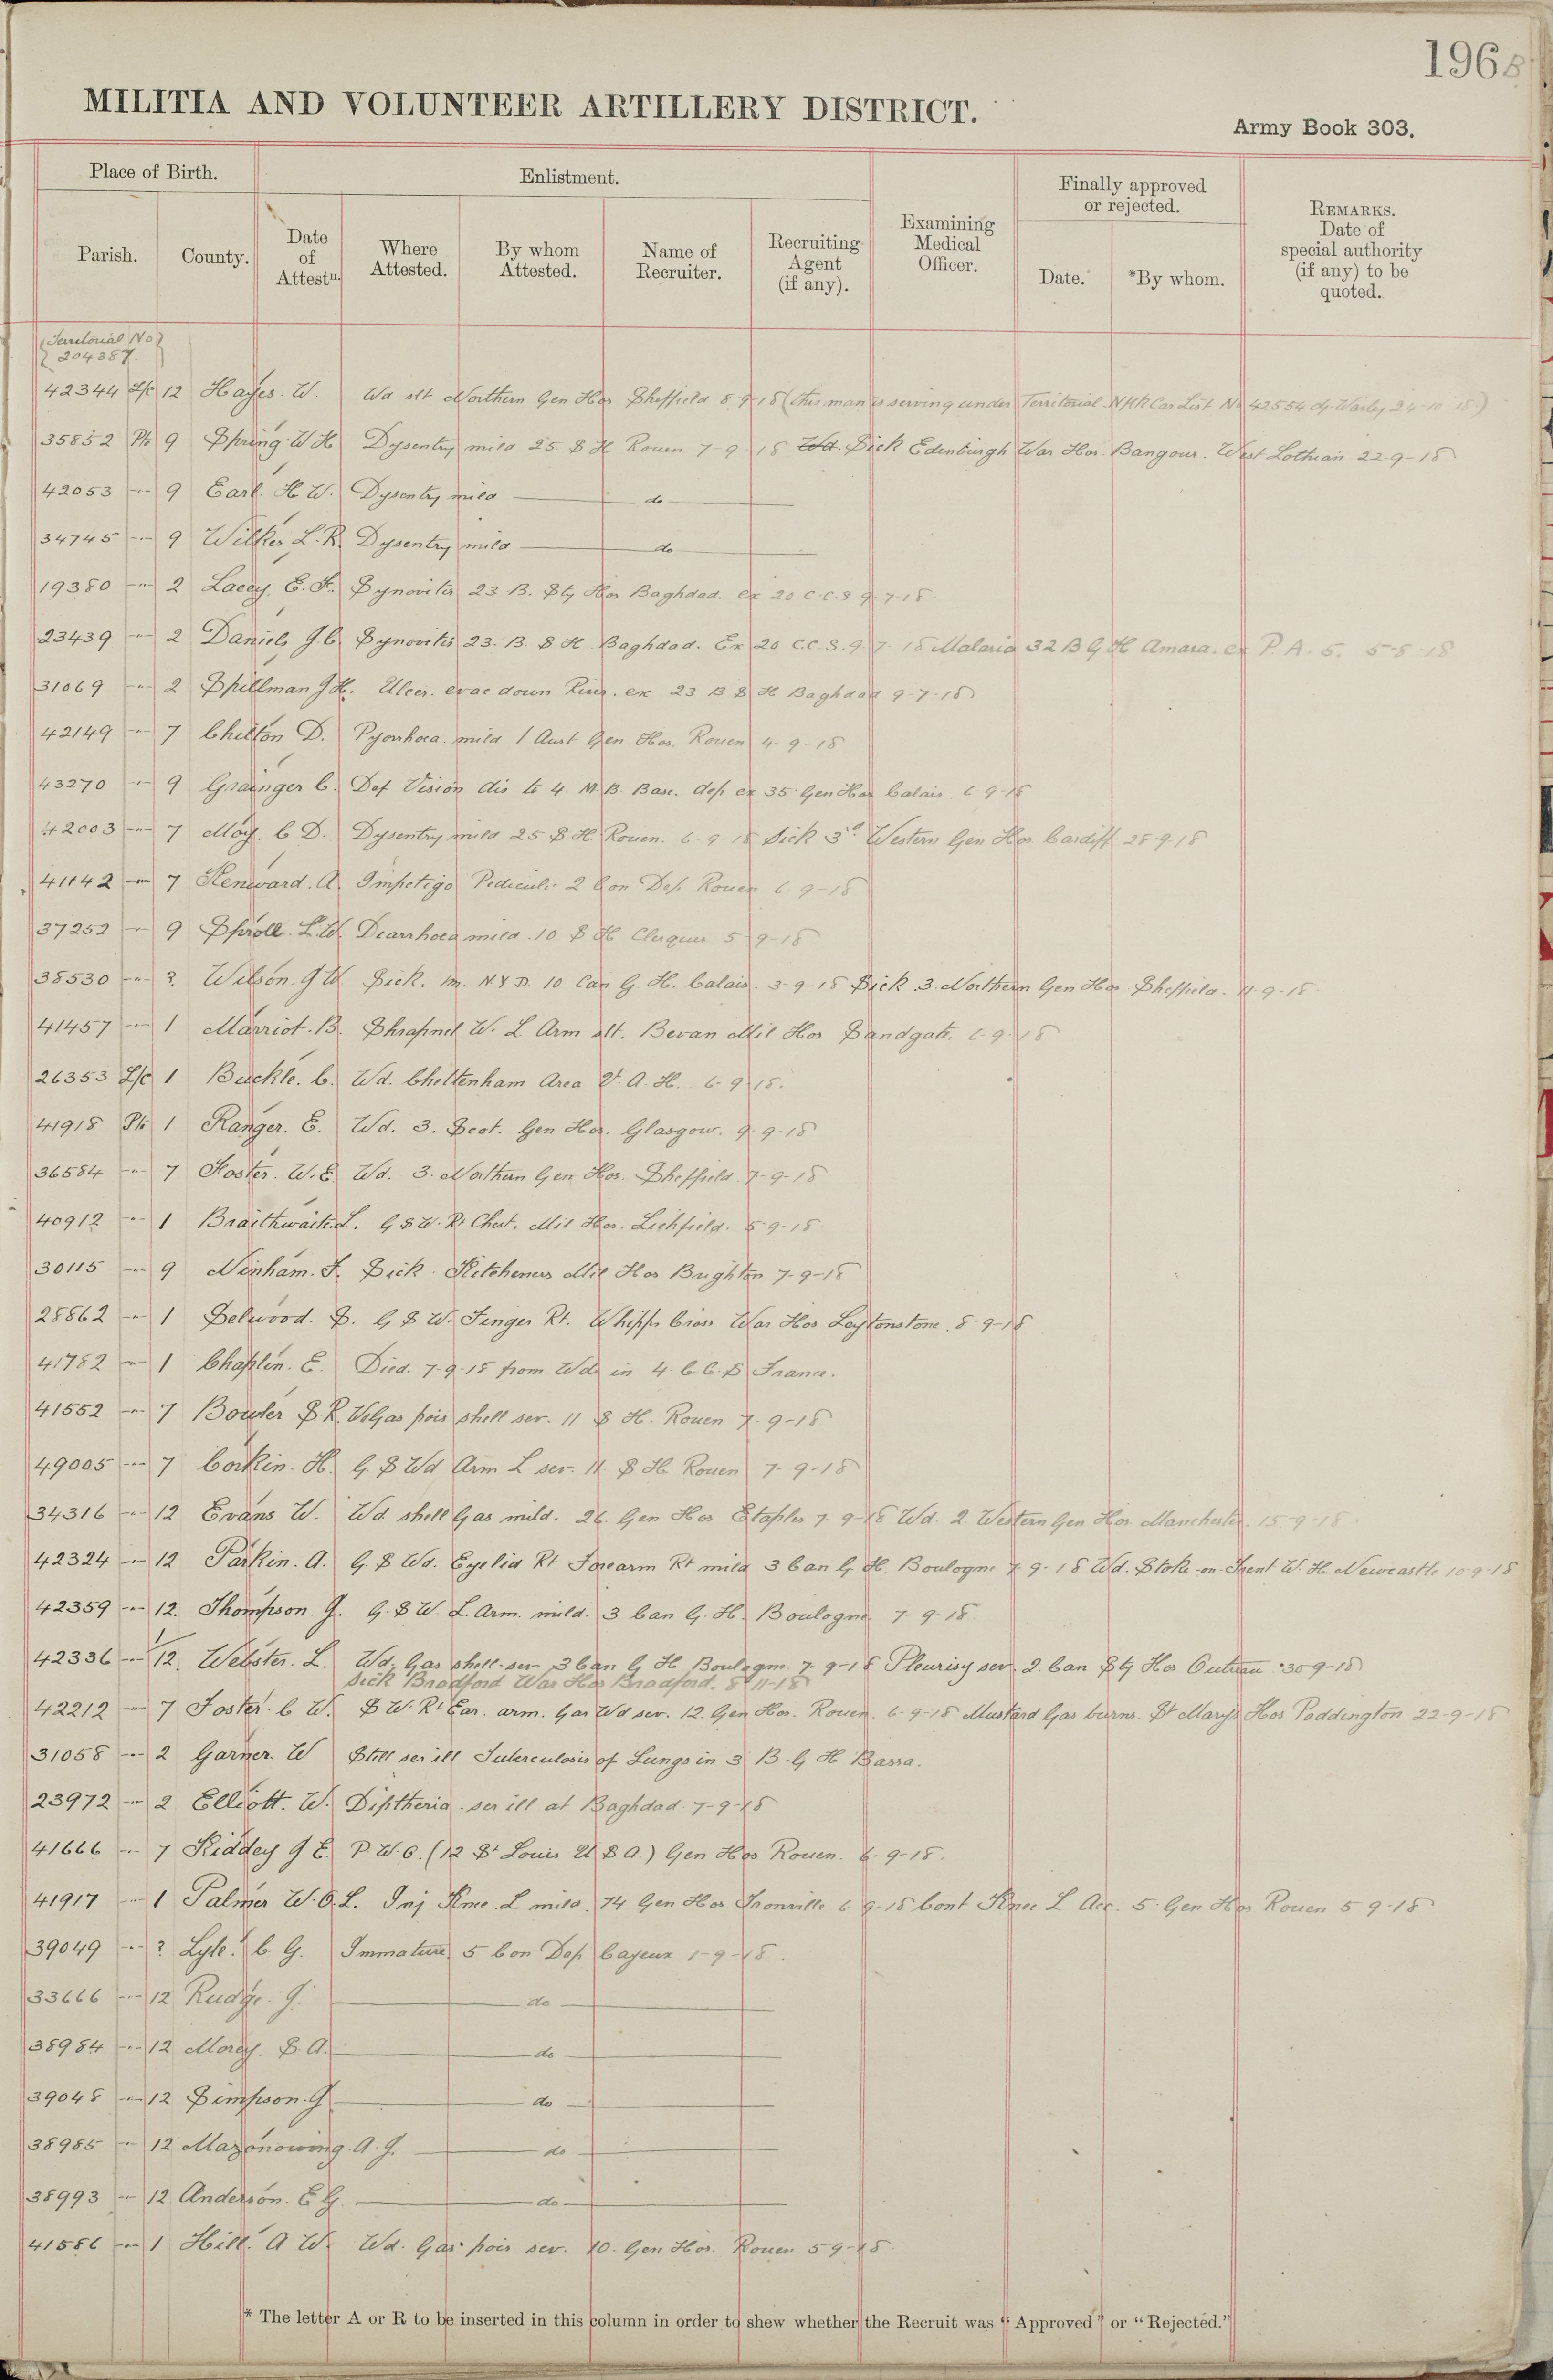 196B
MILITIA AND VOLUNTEER ARTILLERY DISTRICT.
Army Book 303.
Place of Birth.
Enlistment.
Finally approved or rejected.
REMARKS. Date of special authority (if any) to be quoted.
Parish.
County.
Date of Attestn.
Where Attested.
By whom Attested.
Name of Recruiter.
Recruiting Agent (if any).
Examining Medical Officer.
Date.
*By whom.
Territorial No
204387.
42344 L/c 12 Hayes. W. Wd slt Northern Gen Hos Sheffield 8.9-18 (this man is serving under Territorial No 42554 Warley 24-10-18)
35852 Pte 9 Spring. W H Dysentry mild 25 S H Rouen 7-9-18 Wd. Sick Edinburgh War Hos. Bangour. West Lothian 22-9-18
42053 -"- 9 Earl. H W. Dysentry mild do
34745 -"- 9 Wilkes L. R. Dysentry mild do
19380 -"- 2 Lacey. E. F. Synovitis 23 B. Sty Hos Baghdad. ex 20 C.C.S 9-7-18
23439 -"- 2 Daniels J. C. Synovitis 23. B. S H Baghdad. Ex 20 C.C.S. 9-7-18 Malaria 32 B G H Amara. ex P. A. 5. 5-8-18
31069 -"- 2 Spillman J H. Ulcer. evac down River. ex 23 B S H Baghdad 9-7-18
42149 -"- 7 Chilton D. Pyorrhoea. mild 1 Aust Gen Hos. Rouen 4-9-18
43270 -"- 9 Grainger C. Def Vision dis to 4. M.B. Base. dep ex 35 Gen Hos Calais 6-9-18
42003 -"- 7 Moy. C D. Dysentry mild 25 S H Rouen. 6-9-18 Sick 3d Western Gen Hos Cardiff 28-9-18
41142 -"- 7 Kenward. A. Impetigo Pediculi 2 Con Dep Rouen 6-9-18
37252 -"- 9 Sproll. L. W. Diarrhoea mild 10 S H 5-9-18
38530 -"- ? Wilson. J W. Sick. m. N.Y.D. 10 Can G. H. Calais. 3-9-18 Sick 3. Northern Gen Hos Sheffield. 11-9-18
41457 -"- 1 Marriot. B. Shrapnel W. L Arm slt. Bevan Mil Hos Sandgate. 6-9-18
26353 L/c 1 Buckle. C. Wd. Cheltenham Area V. A. H. 6-9-18.
41918 Pte 1 Ranger. E. Wd. 3. Scot. Gen Hos. Glasgow. 9-9-18
36584 -"- 7 Foster. W. E. Wd. 3. Northern Gen Hos. Sheffield. 7-9-18
40912 -"- 1 Braithwaite. L. G S W. Rt Chest. Mil Hos. Lichfield. 5-9-18.
30115 -"- 9 Ninham. F. Sick. Kitcheners Mil Hos Brighton 7-9-18
28862 -"- 1 Selwood. S. G S W. Finger Rt. Whipps Cross War Hos Leytonstone. 8-9-18
41782 -"- 1 Chaplin. E. Died. 7-9-18 from Wds in 4. C.C.S France.
41552 -"- 7 Bowler S. R. Gas pois shell ser. 11 S H. Rouen 7-9-18
49005 -"- 7 Corkin. H. G S Wd Arm L ser. 11. S H. Rouen 7-9-18
34316 -"- 12 Evans W. Wd. shell Gas mild. 26 Gen Hos Etaples 7-9-18 Wd. 2. Western Gen Hos. Manchester. 15-9-18.
42324 -"- 12 Parkin. A. G. S Wd. Eyelid Rt Forearm Rt mild 3 Can G H. Boulogne 7-9-18 Wd. Stoke-on-Trent W. H. Newcastle 10-9-18
42359 -"- 12. Thompson. J. G. S W. L. Arm. mild. 3 Can G. H. Boulogne 7-9-18
42336 -"- 1/12. Webster. L. Wd. Gas shell-ser 3 Can G H Boulogne. 7-9-18 Pleurisy ser. 2. Can Sty Hos Outreau. 30-9-18
Sick Bradford War Hos Bradford. 8-11-18
42212 -"- 7 Foster. C W. S W. Rt Ear. arm. Gas Wd ser. 12. Gen Hos. Rouen. 6-9-18 Mustard Gas burns. St Marys Hos Paddington 22-9-18
31058 -"- 2 Garner. W Still ser ill Tuberculosis of Lungs in 3 B. G H Basra.
23972 -"- 2 Elliott. W. Diptheria. ser ill at Baghdad. 7-9-18
41666 -"- 7 Kiddey J E. P. U. O. (12 St Louis U S A.) Gen Hos Rouen. 6-9-18.
41917 -"- 1 Palmer W. O. L. Inj Knee. L mild. 74 Gen Hos. Tronville 6-9-18 Cont Knee L Acc. 5. Gen Hos Rouen 5-9-18
39049 -"- ? Lyle. C. G. Immature 5 Con Dep Cayeux 1-9-18.
33666 -"- 12 Rudge. J. do
38984 -"- 12 Morey. S. A. do
39048 -"- 12 Simpson. J do
38985 -"- 12 Mazonowing. A. J. do
38993 -"- 12 Anderson. E G. do
41586 -"- 1 Hill. A W. Wd. Gas pois ser. 10. Gen Hos. Rouen 5-9-18.
* The letter A or R to be inserted in this column in order to shew whether the Recruit was "Approved" or "Rejected."